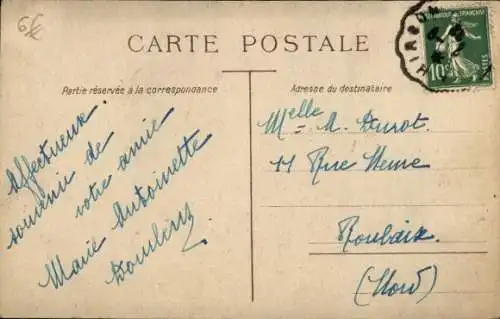 65
CARTE POSTALE
Partie réservée à la correspondance
Adresse du destinataire
HIRSON
10
Affectueux
souvenir de
votre amie
Marie Antoinette
Melle M. Durot.
11 Rue Neuve
Roubaix.
(Nord)